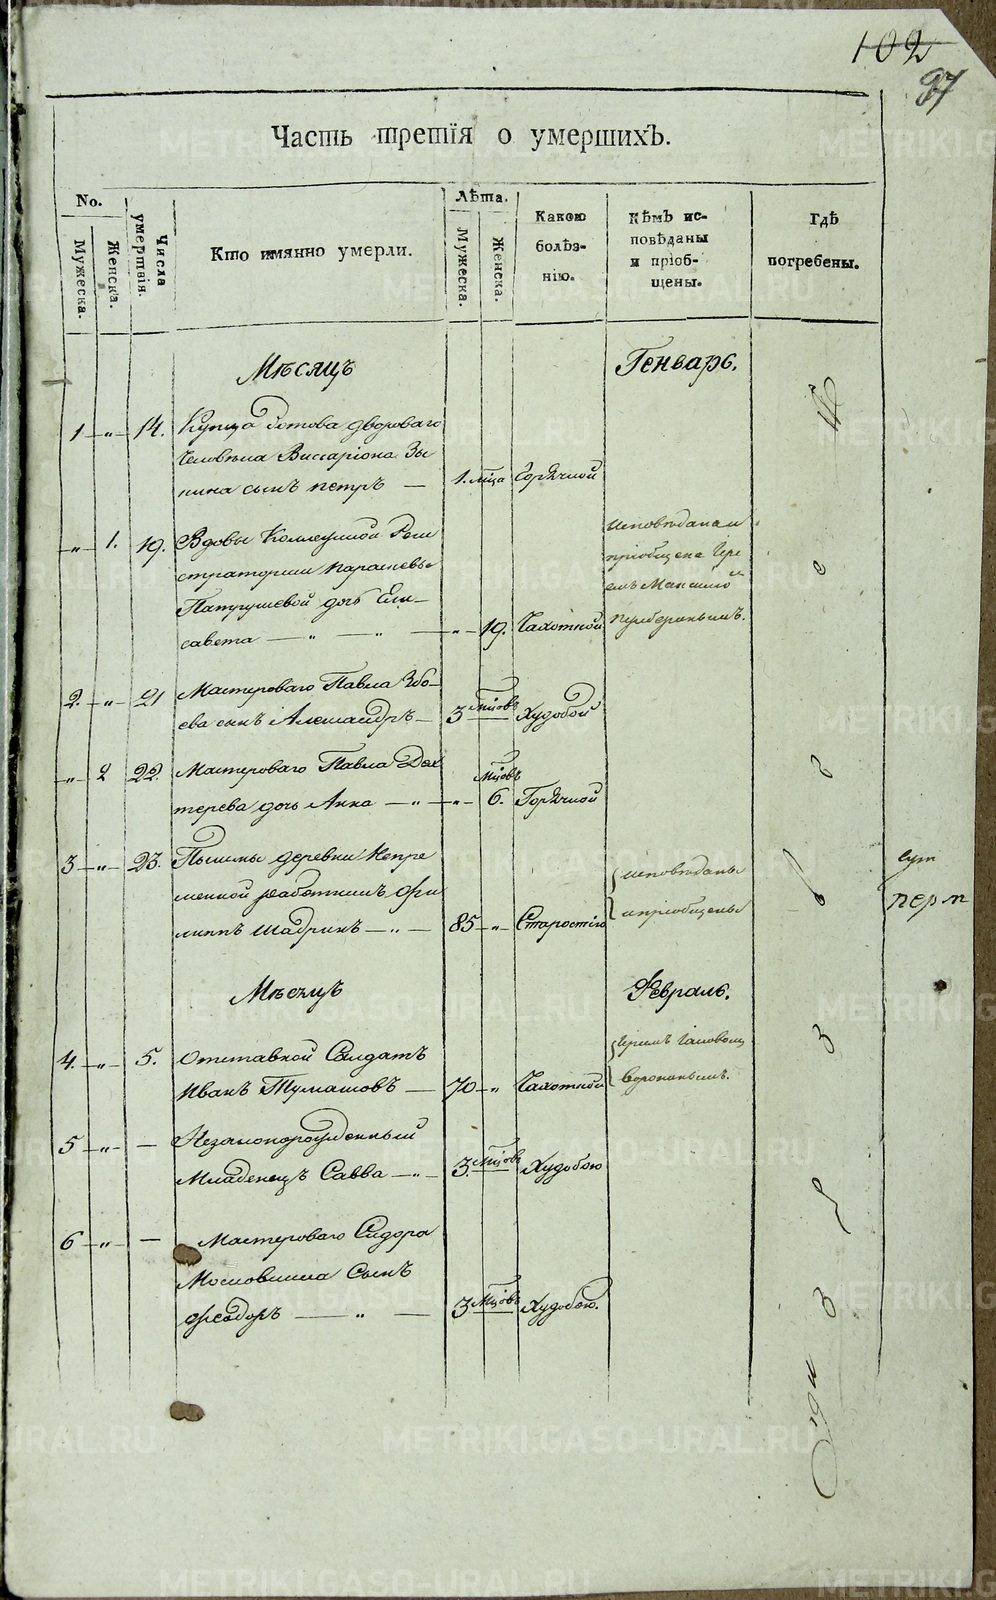 102
97
Часть третія о умершихъ.
No.
Мужеска.
Женска.
Числа умертвія.
Кто имянно умерли.
Лѣта.
Мужеска.
Женска.
Какою
болѣз-
нію.
Кѣмъ ис-
повѣданы
и пріоб-
щены.
Гдѣ
погребены.
Мѣсяцъ Генварь.
1 — „ — 14. Купца дворваго
человѣка Виссаріона Зы
кина сынъ Петръ — 1. мца Горячкой
„ — 1. 19. Вдовы Коллежской Реги
страторши Параскевьи
дочь Ели—
савета — „ — „ — „ — 19. Чахоткой
исповѣдана и
пріобщена Іере
емъ
2. — „ — 21 Мастероваго Павла Збо—
ева сынъ Александръ — 3 мцовъ Худобой
„ — 2 22. Мастероваго Павла Дех
терева дочь Анна — „ — „ — 6. мцовъ Горячкой
3 — „ — 23. Пышмы деревни Непре
менной работникъ Фи
липпъ Шадринъ — „ — 85 — „ Старостію
исповѣданъ
и пріобщенъ
сут
перм
Мѣсяцъ Февраль.
4. — „ — 5. Отставной Салдатъ
Иванъ Тумашовъ — 70 — „ Чахоткой
Іереемъ Іаковомъ
5 — „ — — Незаконорожденный
Младенецъ Савва — „ — 3. мцовъ Худобою
6 — „ — — Мастероваго Сидора
Московкина Сынъ
Феодоръ — „ — 3 мцовъ Худобою.